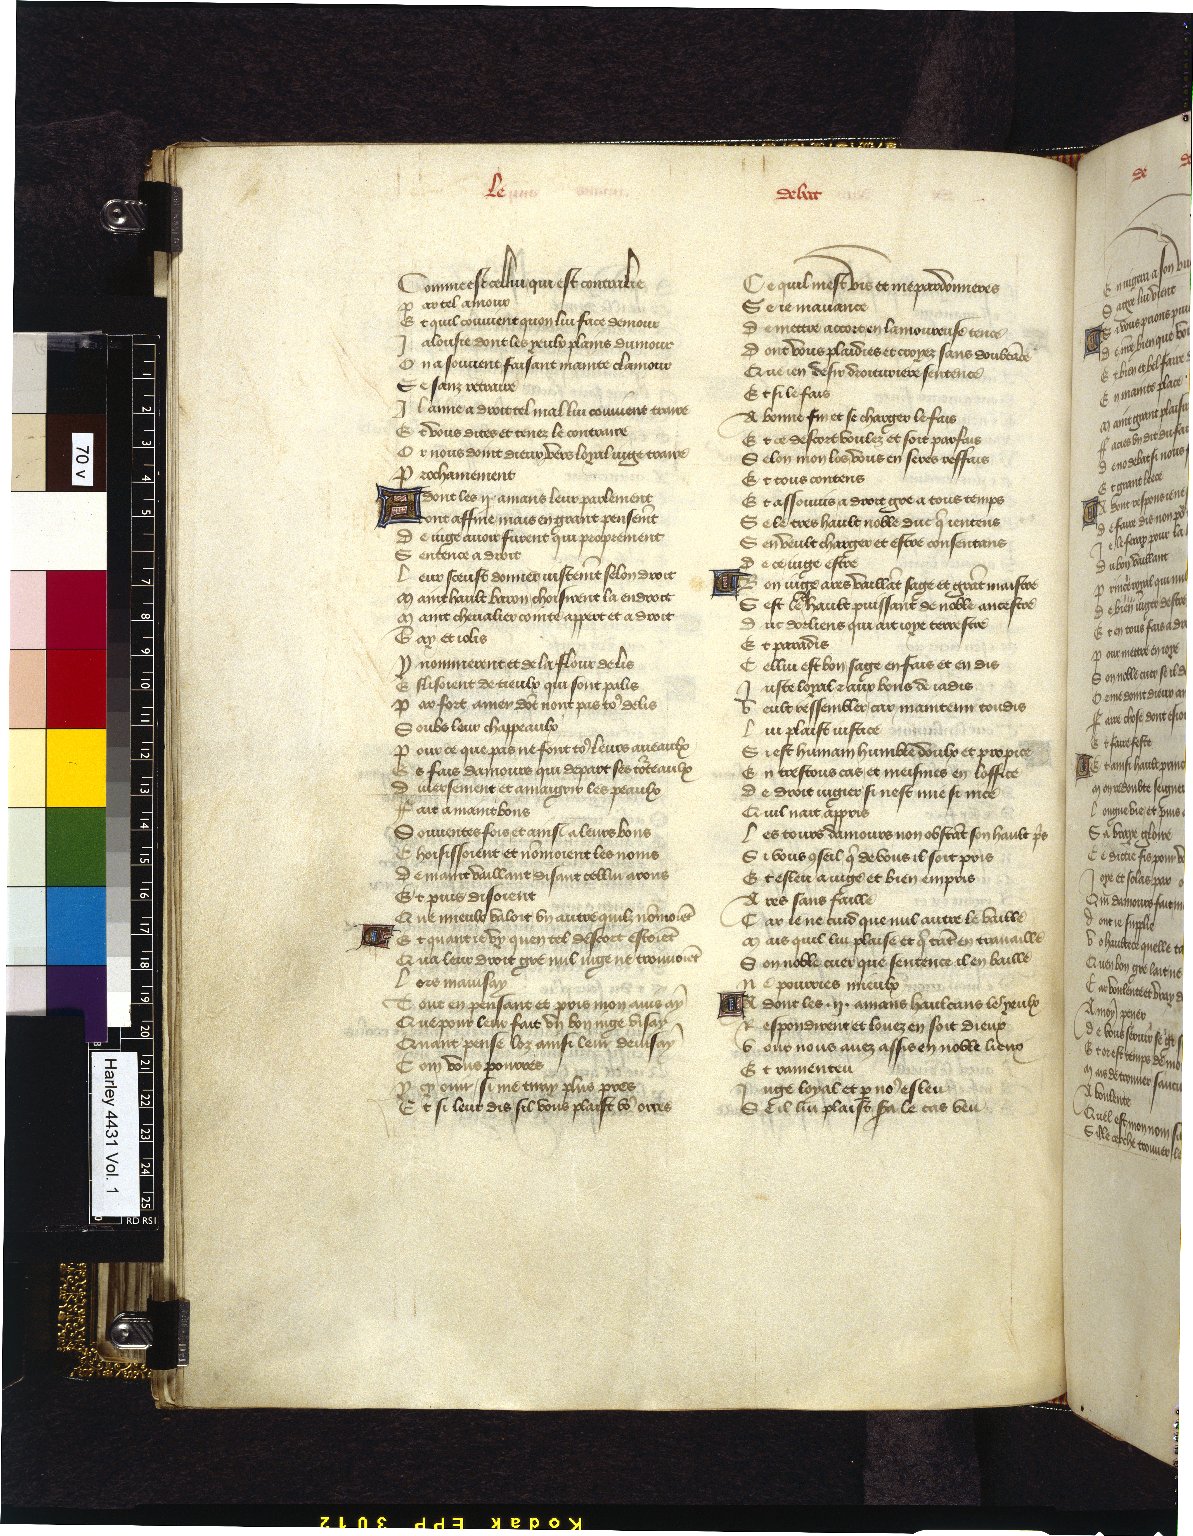 Le debat
Comme est cellui qui est contraire
Par tel amour
Et quil couvient quon lui face demour
Jalousie dont les yeulx plains dumour
On a souvent faisant mainte clamour
Se sanz retraire
Il aime a droit tel mal lui couvient traire
Et vous dites et tenez le contraire
Or nous doint dieux vers loyal iuge traire
Prochainement
Adont les .ij. amans leur parlement
Tont affine mais en grant pensemt
De iuge avoir furent qui proprement
Sentence a droit
Leur sceust donner iustemt selon droit
Maint hault baron choisirent la endroit
Maint chevalier conte appert et a droit
Gay et iolis
Y nommerent et de la flour de lis
Eslisoient de tieulx qui sont palis
Par fort amer dot nont pas to9 delis
Soubz leur chappeaulx
Pour ce que pas ne font to9 leurs aveaulx
Es fais damours qui depart ses torteaulx
Diversement et amaigrir les peaulx
Fait a maint bons
Souventes fois et ainsi a leurs bons
Choisissoient et nomoient les noms
De maint vaillant disant cellui arons
Et puis disoient
Que mieulx valoit un autre quilz nomoiet
Et quant ie vy quen tel descort estoiet
Qua leur droit gre nul iuge ne trouvoiet
Lors mavisay
Tout en pensant et pris mon avis ay
Que pour leur fait un bon iuge visay
Quant pense loz ainsi leur devisay
Com vous pourres
Y cy ouir si me tray plus pres
Et si leur dis sil vous plaist vo9 orres
Ce quil mest vis et me pardonneres
Se ie mavance
De mettre accort en lamoureuse tence
Dont vous plaidies et croyez sans doubtace
Que ien desir droituriere sentence
Et si le fais
A bonne fin et se charger le fais
Et ce descort voulez et soit parfais
Selon mon los vous en seres reffais
Et tous contens
Et assouvis a droit gre a tous temps
Se le tres hault noble duc q ientens
Sen veult charger et estre consentans
De ce iuge estre
Bon iuge ares vaillat sage et grat maistre
Sest le hault puissant de noble ancestre
Duc dorliens qui ait ioye terrestre
Et paradis
Cellui est bon sage en fais et en dis
Juste loyal z aux bons de iadis
Veult ressembler car maintenir toudis
Lui plaist iustice
Si est humain humble doulx et propice
En trestous cas et meismes en loffice
De droit iugier si nest mie si nice
Quil nait appris
Les tours damours non obstat son hault pis
Si vous 9seil q de vous il soit pris
Et esleu a iuge et bien empris
Ares sans faille
Car ie ne cuid que nul autre le vaille
Mais quil lui plaise et q tat en travaille
Son noble cuer que sentence il en baille
Ne pourries mieulx
Adont les .ij. amans haulcans les yeulx
Respondirent et louez en soit dieux
Vous nous avez assis en noble lieux
Et ramenteu
Iuge loyal et p no9 esleu
Se il lui plaist sa le cas veu
de
70 v
Harley 4431 Vol. 1
Kodak EPP 3012